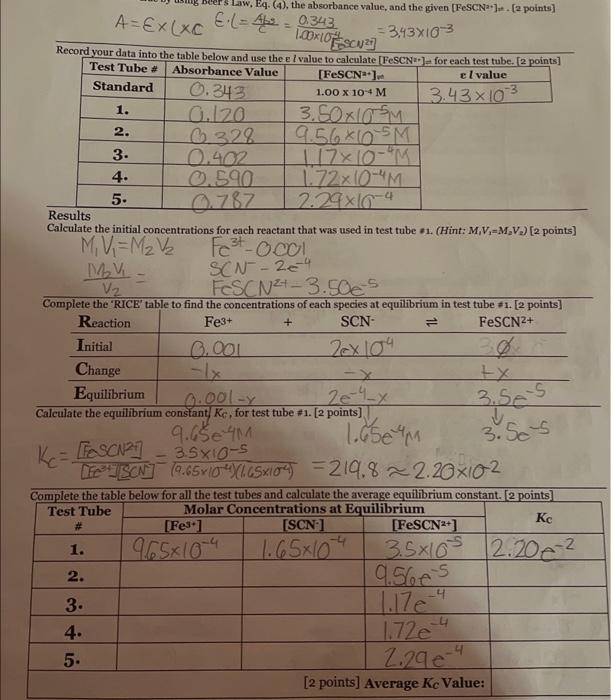 Beer's Law, Eq. (4), the absorbance value, and the given [FeSCN²⁺]ₑq. [2 points]
A=Ɛx(xC Ɛ·l = Abs/[FeSCN²⁺] = 0.343/1.00x10⁻⁴ = 3.43x10⁻³
Record your data into the table below and use the ε l value to calculate [FeSCN²⁺]ₑq for each test tube. [2 points]
Test Tube # Absorbance Value [FeSCN²⁺]ₑq ε l value
Standard 0.343 1.00 x 10⁻⁴ M 3.43x10⁻³
1. 0.120 3.50x10⁻⁵M
2. 0.328 9.56x10⁻⁵M
3. 0.402 1.17x10⁻⁴M
4. 0.590 1.72x10⁻⁴M
5. 0.787 2.29x10⁻⁴
Results
Calculate the initial concentrations for each reactant that was used in test tube #1. (Hint: M₁V₁=M₂V₂) [2 points]
M₁V₁=M₂V₂ Fe³⁺-0.001
M₂V₁/V₂ = SCN⁻ - 2e⁻⁴
FeSCN²⁺-3.50e⁻⁵
Complete the 'RICE' table to find the concentrations of each species at equilibrium in test tube #1. [2 points]
Reaction Fe³⁺ + SCN⁻ ⇌ FeSCN²⁺
Initial 0.001 2x10⁴ Ø
Change -1x -x +x
Equilibrium 0.001-x 2e⁻⁴-x 3.5e⁻⁵
Calculate the equilibrium constant, Kc, for test tube #1. [2 points]
9.65e⁻⁴M 1.65e⁻⁴M 3.5e⁻⁵
Kc = [FeSCN²⁺]/[Fe³⁺][SCN⁻] = 3.5x10⁻⁵/(9.65x10⁻⁴)(1.65x10⁻⁴) = 219.8 ≈ 2.20x10⁻²
Complete the table below for all the test tubes and calculate the average equilibrium constant. [2 points]
Test Tube # Molar Concentrations at Equilibrium Kc
[Fe³⁺] [SCN⁻] [FeSCN²⁺]
1. 9.65x10⁻⁴ 1.65x10⁻⁴ 3.5x10⁻⁵ 2.20e⁻²
2. 9.56e⁻⁵
3. 1.17e⁻⁴
4. 1.72e⁻⁴
5. 2.29e⁻⁴
[2 points] Average Kc Value: